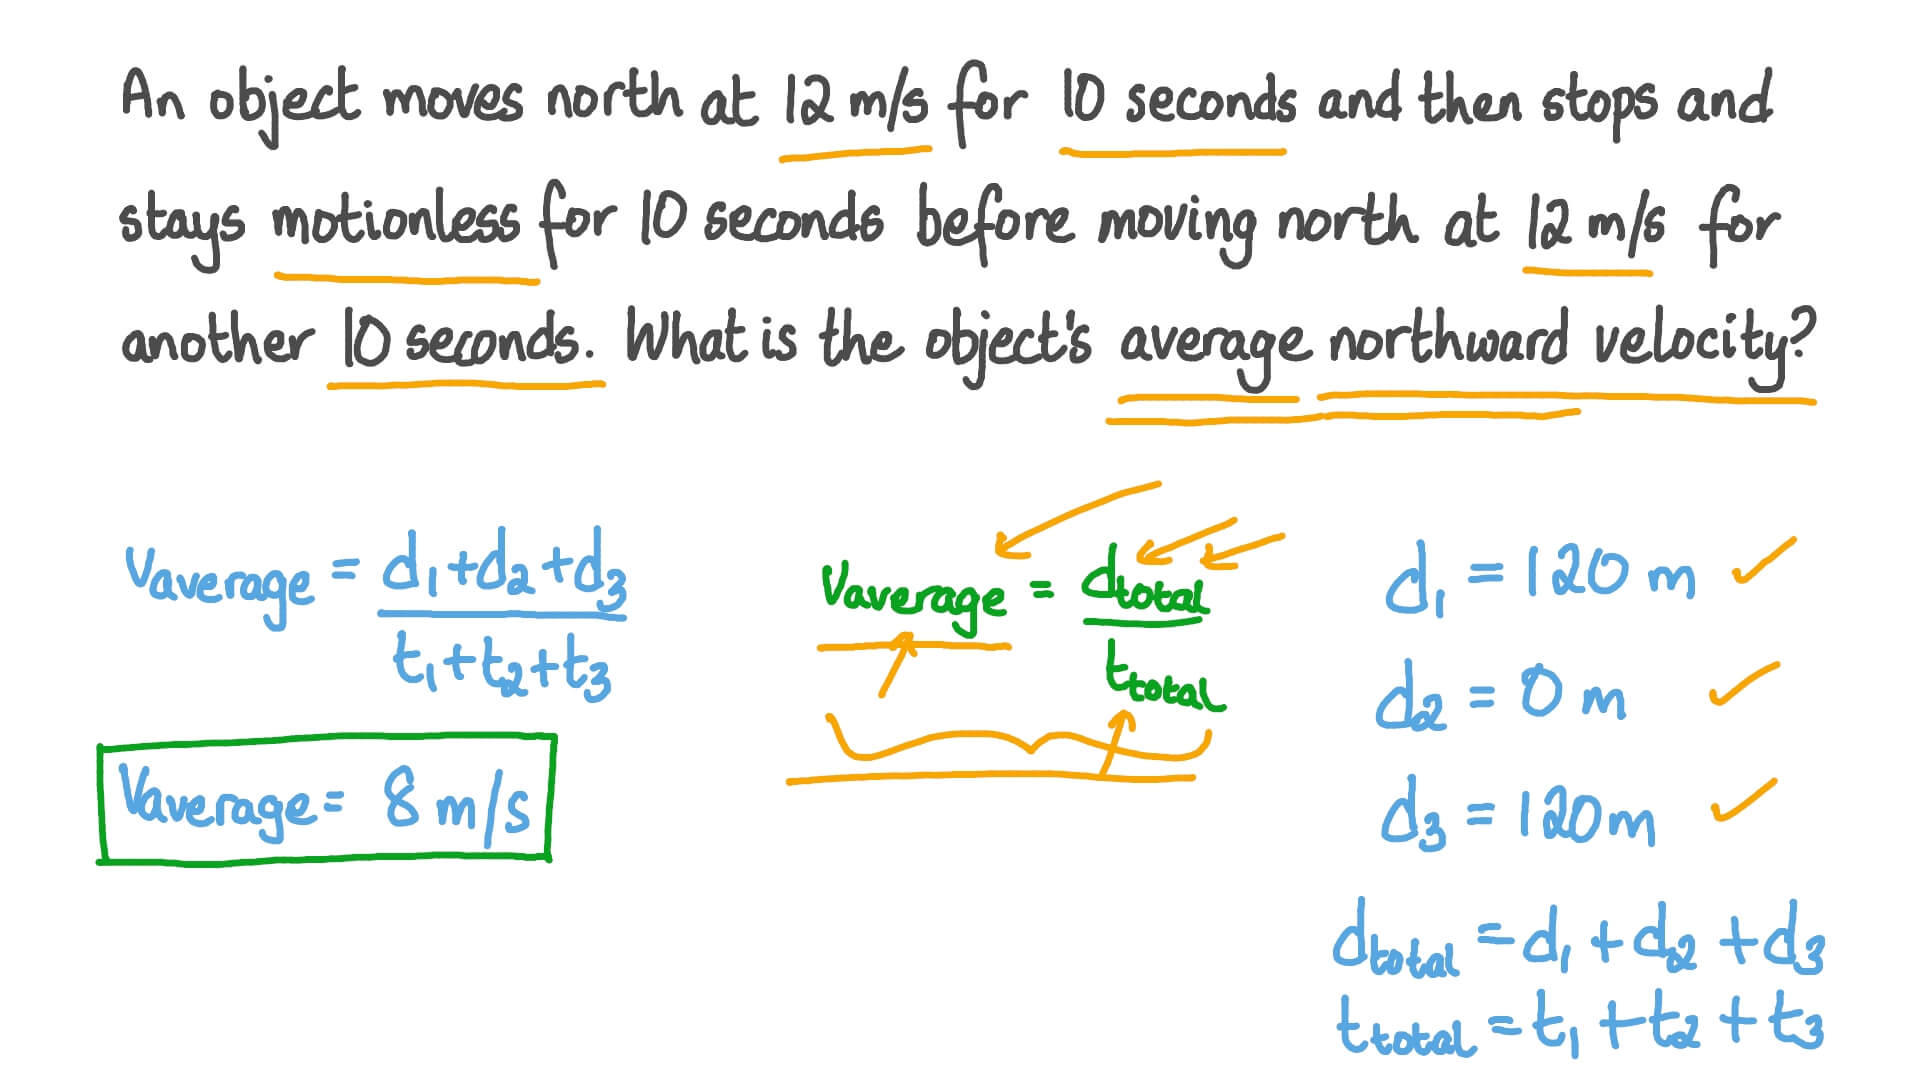 An object moves north at 12 m/s for 10 seconds and then stops and
stays motionless for 10 seconds before moving north at 12 m/s for
another 10 seconds. What is the object's average northward velocity?
Vaverage = d1+d2+d3
t1+t2+t3
Vaverage = 8 m/s
Vaverage = dtotal
ttotal
d1 = 120 m ✓
d2 = 0 m ✓
d3 = 120m ✓
dtotal = d1 + d2 + d3
ttotal = t1 + t2 + t3